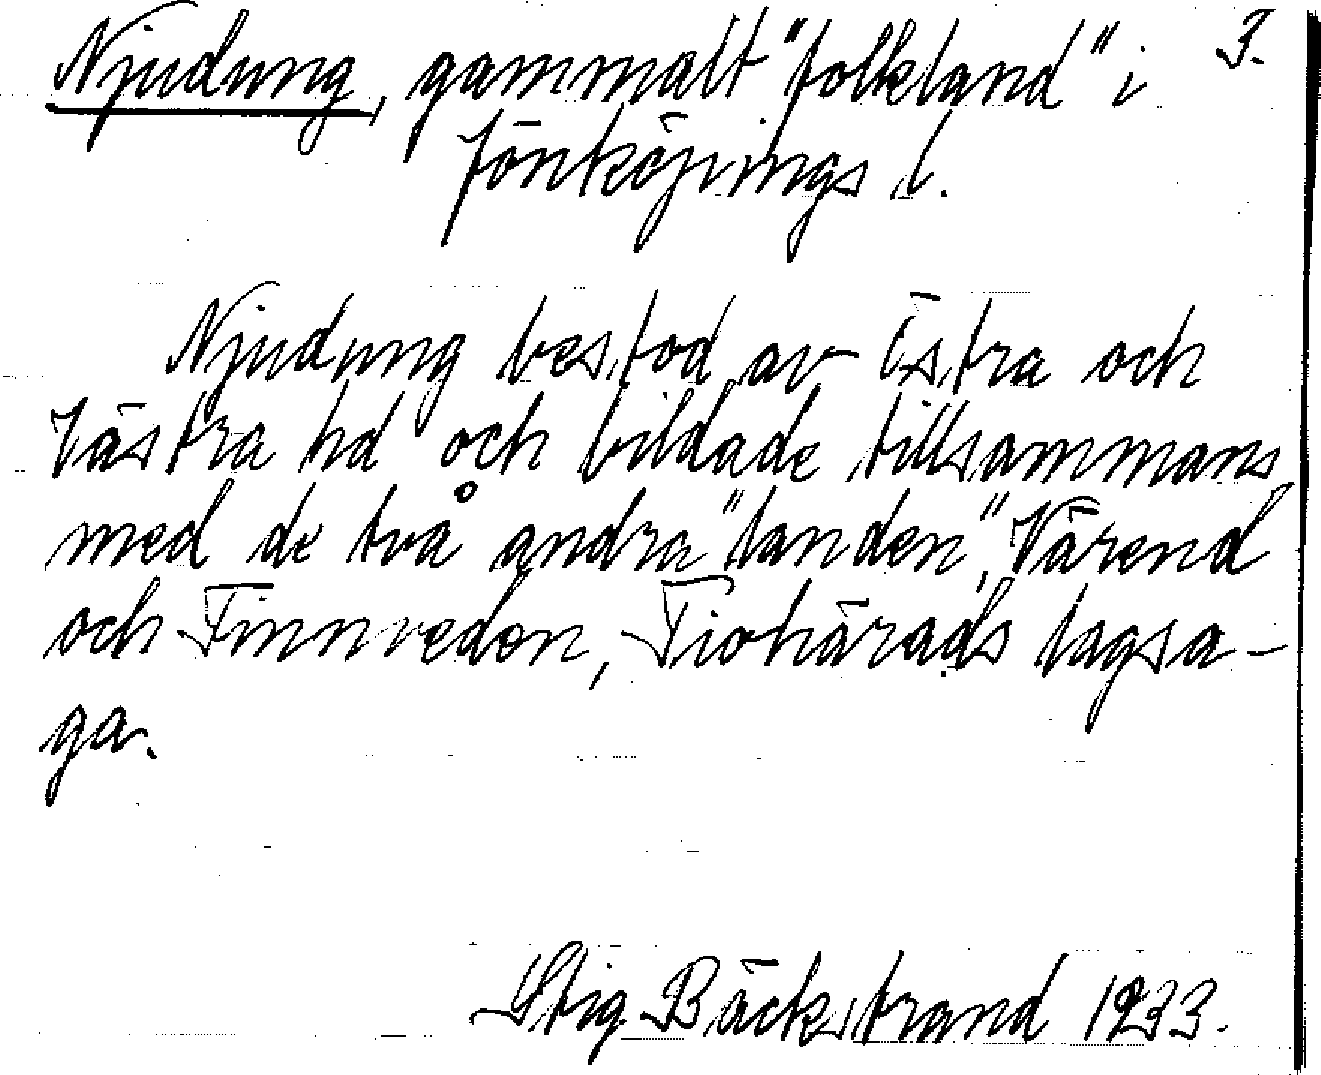 Njudung, gammalt "folkland" i 3.
Jönköpings l.
Njudung bestod av Östra och
Västra hd och bildade tillsammans
med de två andra "landen", Värend
och Finnveden, Tiohärads lagsa-
ga.
Stig Bäckstrand 1933.